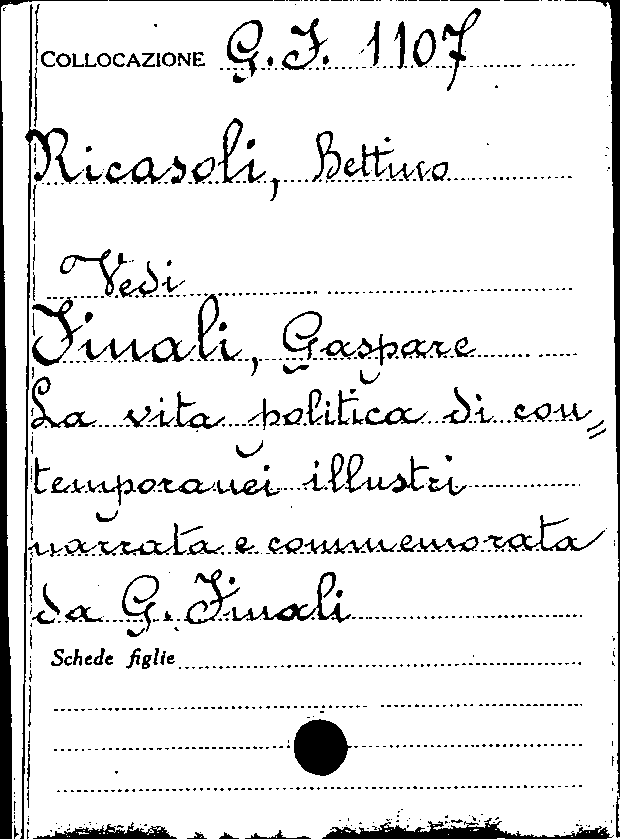 COLLOCAZIONE G. F. 1107
Ricasoli, Bettino
Vedi
Finali, Gaspare
La vita politica di con=
temporanei illustri
narrata e commemorata
da G. Finali
Schede figlie